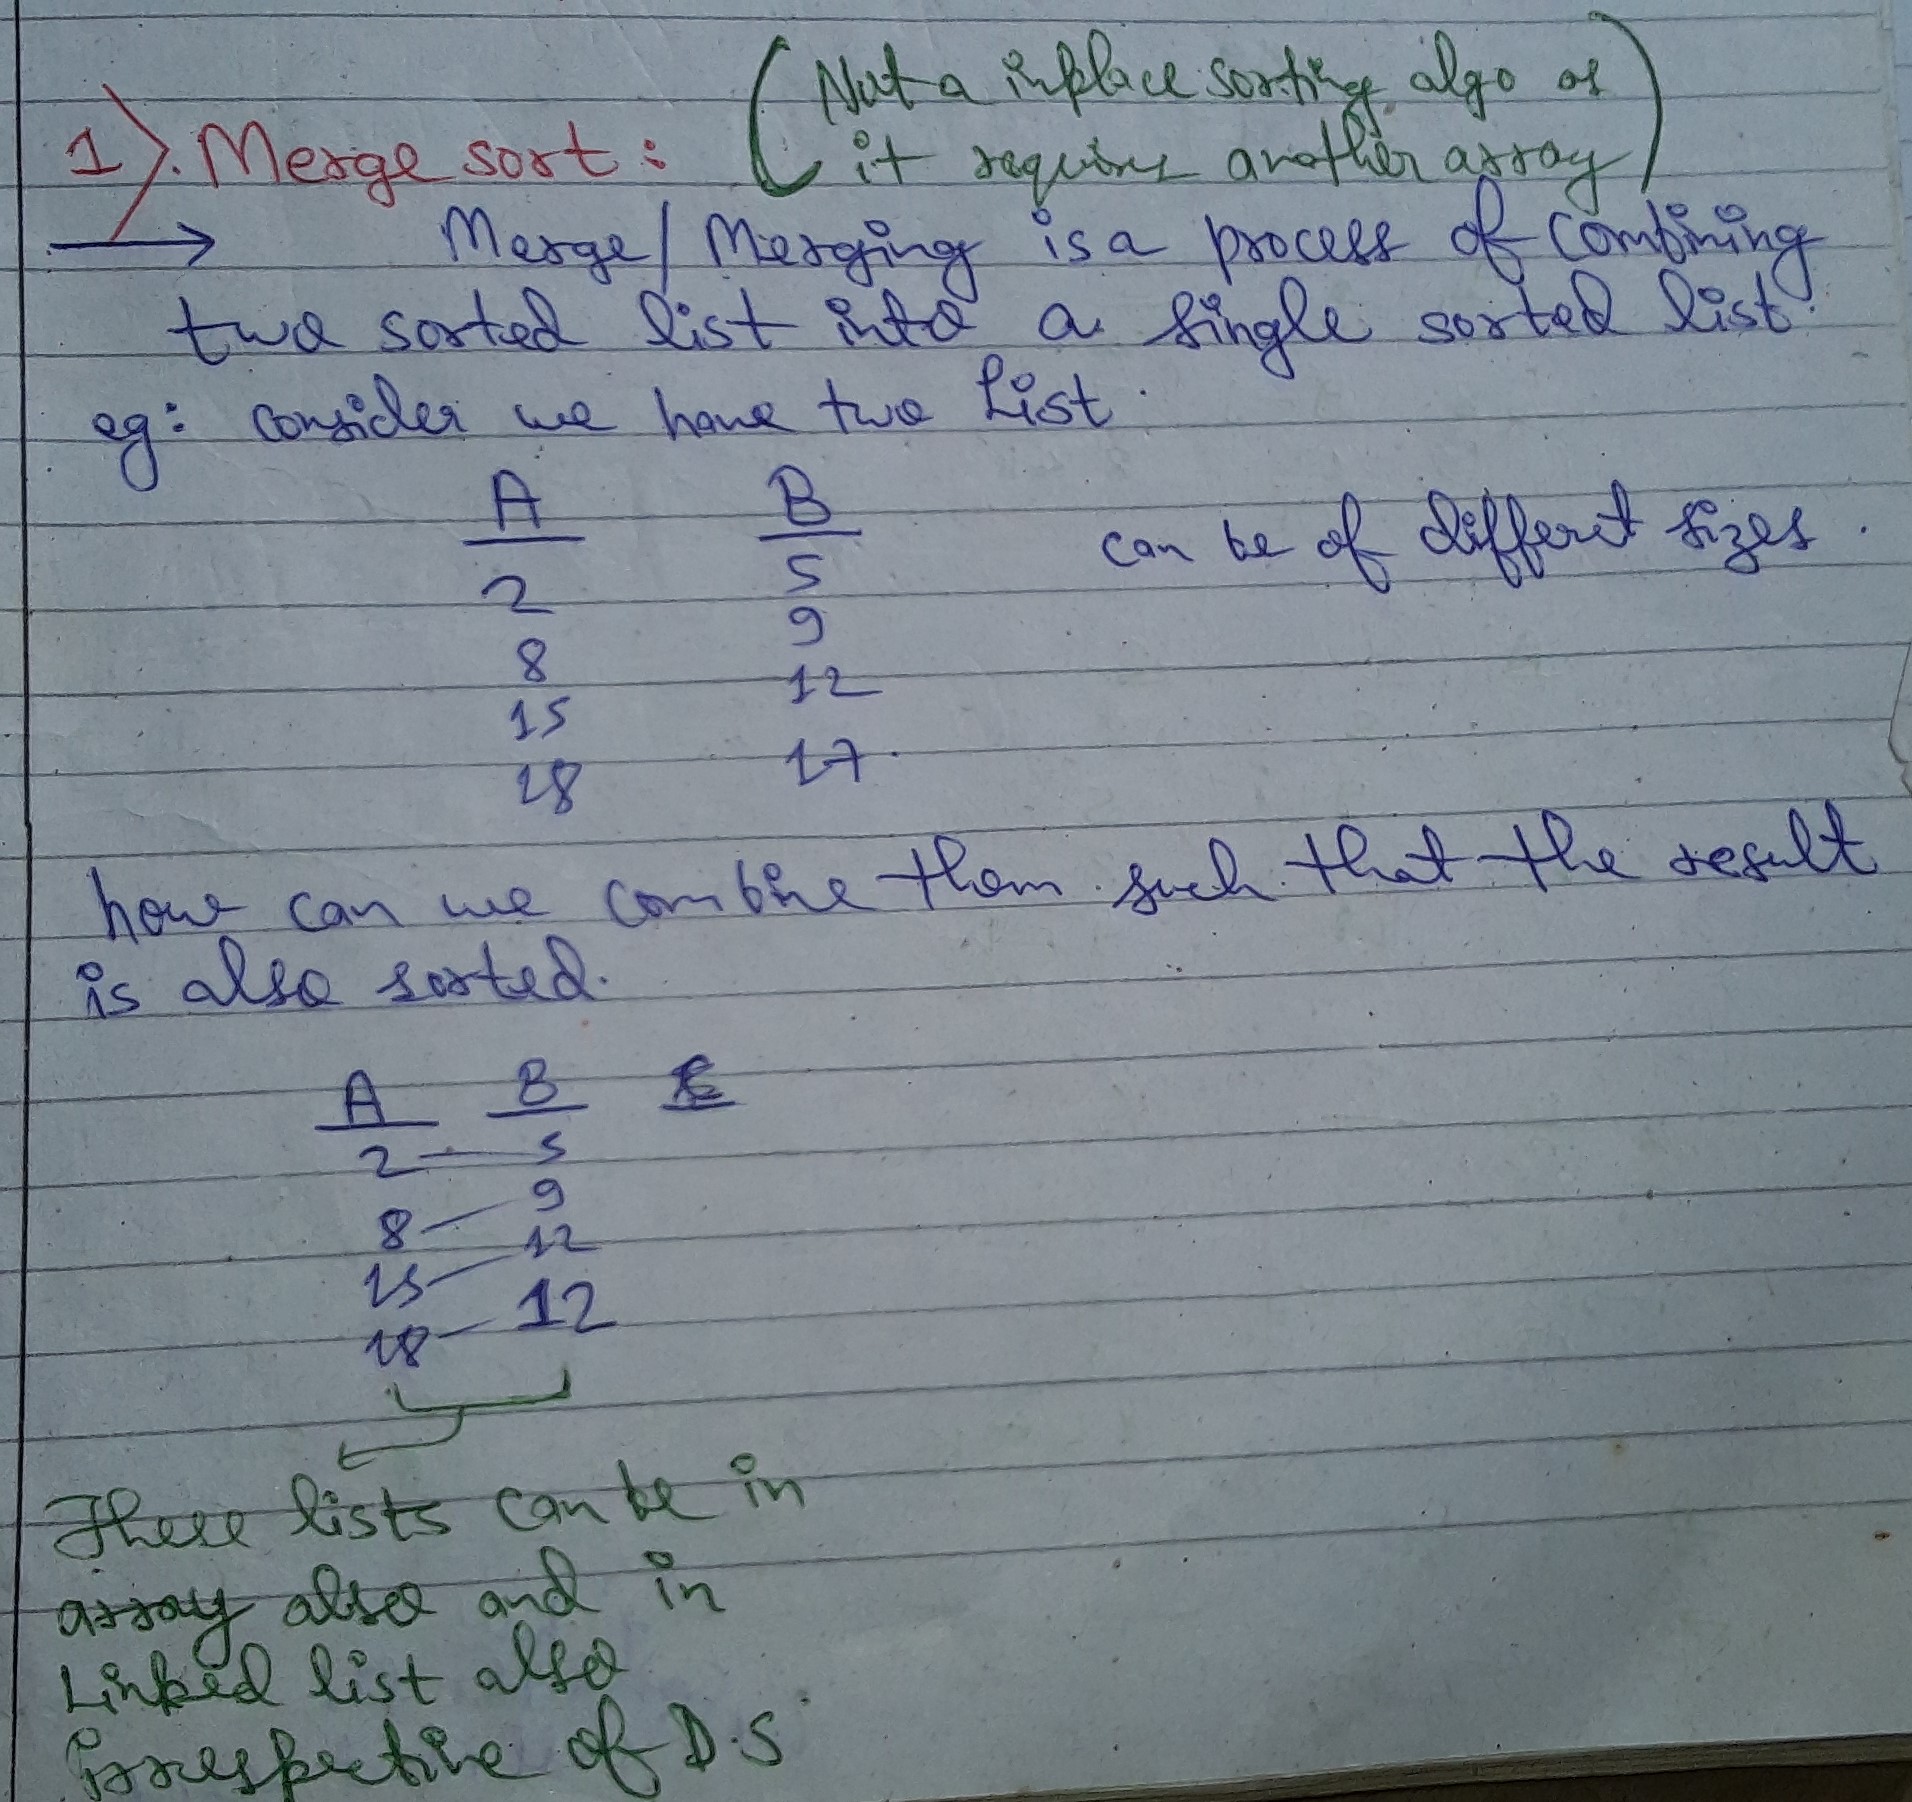 (Not a inplace sorting algo as
1). Merge sort: it requires another array)
Merge/Merging is a process of combining
two sorted list into a single sorted list.
eg: consider we have two List.
A B
can be of differet sizes.
2 5
9
8
12
15
17
18
how can we combine them such that the result
is also sorted.
A B
2 5
9
8
12
15
12
18
These lists can be in
array also and in
Linked list also
irrespective of D.S